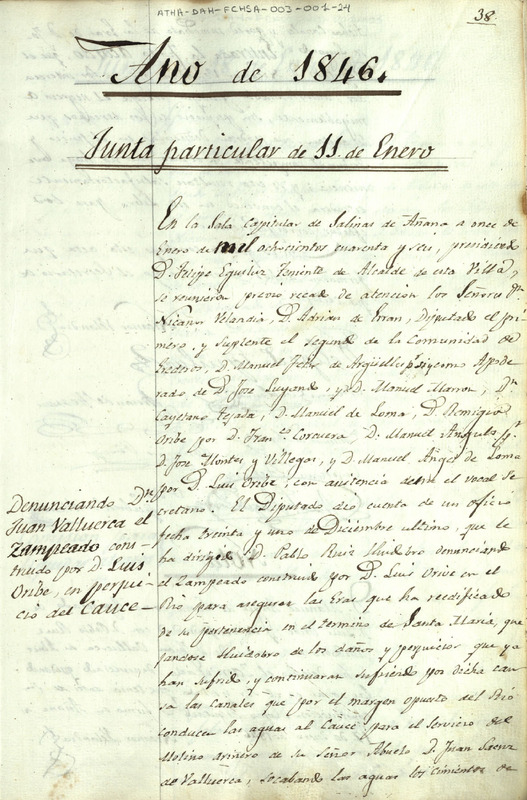 ATHA-DAH-FCHSA-003-001-24
38.
Año de 1846.
Junta particular de 11. de Enero
En la Sala Capitular de Salinas de Añana a once de
Enero de mil ochocientos cuarenta y seis, presidiendo
D. Felipe Eguiluz Teniente de Alcalde de esta Villa,
se reunieron previo recado de atencion los Señores Dn.
Nicanor Velandia, D. Adrian de Erran, Diputado el pri
mero, y suplente el segundo de la Comunidad de
Erederos, D. Manuel Feliz de Argüelles por si y como Apode
rado de D. Jose Luyando, y D. Manuel Marron, Dn.
Cayetano Tejada, D. Manuel de Loma, D. Remigio
Oribe por D. Franco. Corcuera, D. Manuel Angulo, pr.
D. Jose Montes y Villegas, y D. Manuel Angel de Loma
por D. Luis Oribe, con asistencia de mi el vocal Se
cretario. El Diputado dio cuenta de un oficio
fecha treinta y uno de Diciembre ultimo, que le
ha dirigido D. Pablo Ruiz Huidobro denunciando
el Zampeado construido por D. Luis Oribe en el
Rio para asegurar las Eras que ha reedificado
de su pertenencia en el termino de Santa Maria, que
jandose Huidobro de los daños y perjuicios que ya
han sufrido, y continuaran sufriendo por dicha cau
sa las Canales que por el margen opuesto del Rio
conducen las aguas al Cauce para el servicio del
Molino arinero de su Señor Abuelo D. Juan Saenz
de Valluerca, socabando las aguas los cimientos de
Denunciando Dn.
Juan Valluerca el
Zampeado cons-
truido por D. Luis
Oribe, en perjui
cio del Cauce